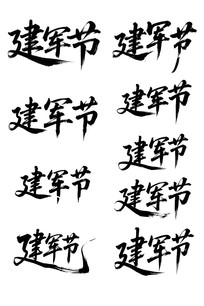 建军节
建军节
建军节
建军节
建军节
建军节
建军节
建军节
建军节